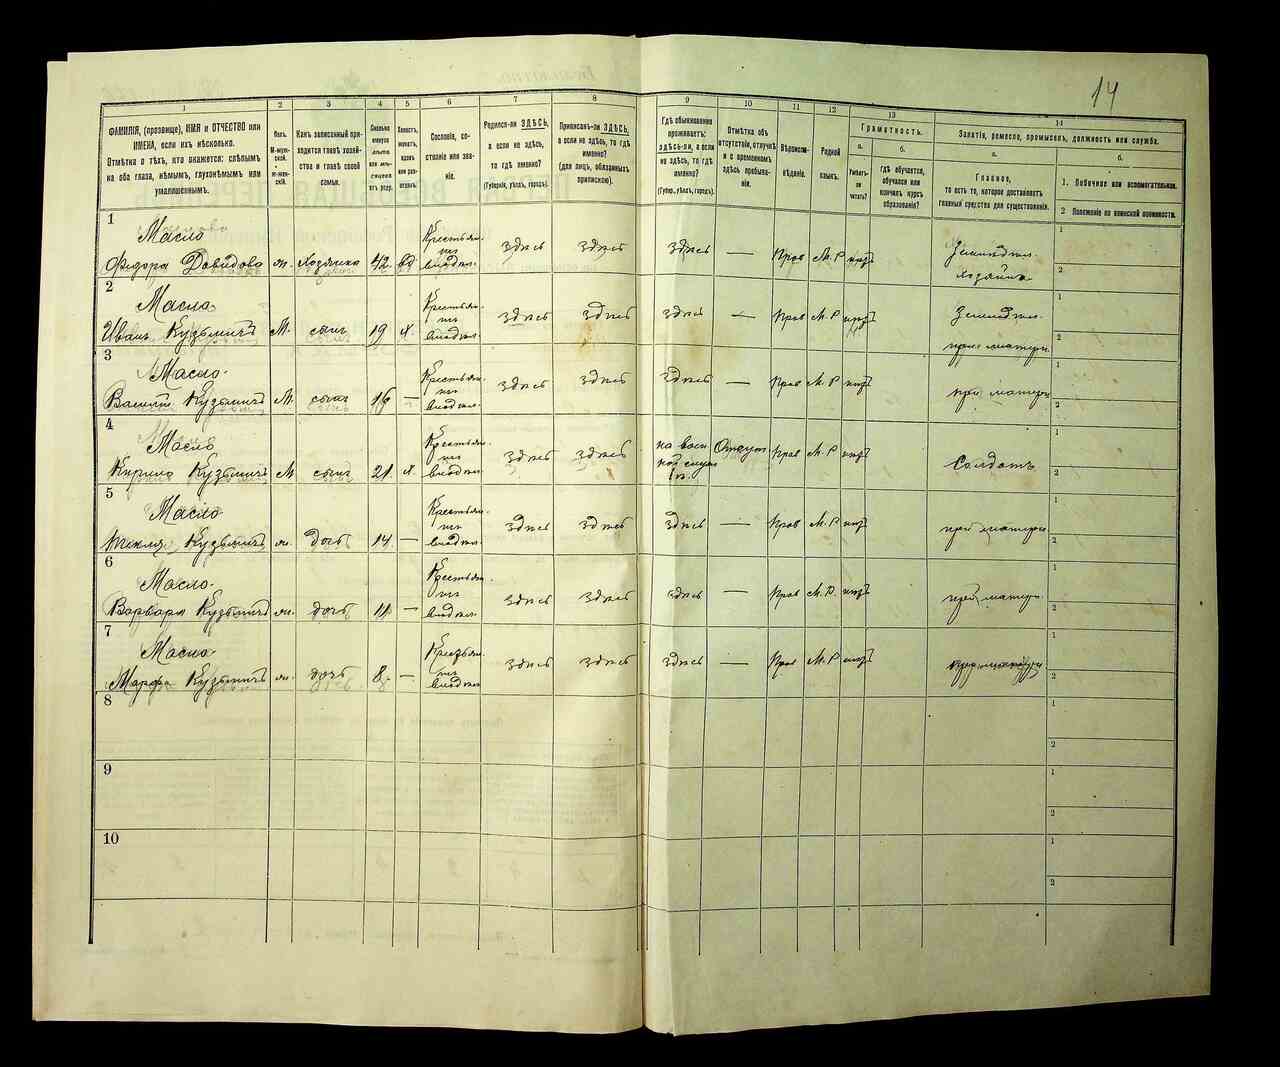 14
1
2
3
4
5
6
7
8
9
10
11
12
13
14
ФАМИЛІЯ, (прозвище), ИМЯ и ОТЧЕСТВО или
ИМЕНА, если ихъ нѣсколько.
Отмѣтка о тѣхъ, кто окажется: слѣпымъ
на оба глаза, нѣмымъ, глухонѣмымъ или
умалишеннымъ.
Полъ.
М-мужской.
Ж-женскій.
Какъ записанный приходится главѣ хозяйства и главѣ своей семьи.
Сословіе, состояніе или званіе.
Родился-ли ЗДѢСЬ,
а если не здѣсь,
то гдѣ именно?
(Губернія, уѣздъ, городъ).
Приписанъ-ли ЗДѢСЬ,
а если не здѣсь, то гдѣ
именно?
(для лицъ, обязанныхъ
припискою).
Гдѣ обыкновенно
проживаетъ:
здѣсь-ли, а если
не здѣсь, то гдѣ
именно?
(Губер., уѣздъ, городъ).
Отмѣтка объ
отсутствіи, отлучкѣ
и о временномъ
здѣсь пребываніи.
Вѣроисповѣданіе.
Родной
языкъ.
Грамотность.
а.
Умѣетъ-ли
читать?
б.
гдѣ обучается,
обучался или
кончилъ курсъ
образованія?
Занятіе, ремесло, промыселъ, должность или служба.
а.
Главное,
то есть то, которое доставляетъ
главныя средства для существованія.
б.
1. Побочное или вспомогательное.
2 Положеніе по воинской повинности.
1
Масло
Федора Давидова ж. Хозяйка 42 вд Крестьян. здѣсь здѣсь здѣсь — Прав М.Р
хозяйка
1
2
2
Масло
Иванъ Кузьмичъ М. сынъ 19 х. Крестьян. здѣсь здѣсь здѣсь — Прав М.Р
при матери
1
2
3
Масло
Василій Кузьмичъ М. сынъ 16 — Крестьян. здѣсь здѣсь здѣсь — Прав М.Р при матери
1
2
4
Масло
Кирило Кузьмичъ М сынъ 21 х. Крестьян. здѣсь здѣсь Прав М.Р Солдатъ
1
2
5
Масло
Кузьмичъ ж. дочь 14 — Крестьян. здѣсь здѣсь здѣсь — Прав М.Р при матери
1
2
6
Масло
Варвара Кузьмичъ ж. дочь 11 — Крестьян. здѣсь здѣсь здѣсь — Прав М.Р. при матери
1
2
7
Масло
Марфа Кузьмичъ ж. дочь 8 — Крестьян. здѣсь здѣсь здѣсь — Прав М.Р при матери
1
2
8
1
2
9
1
2
10
1
2